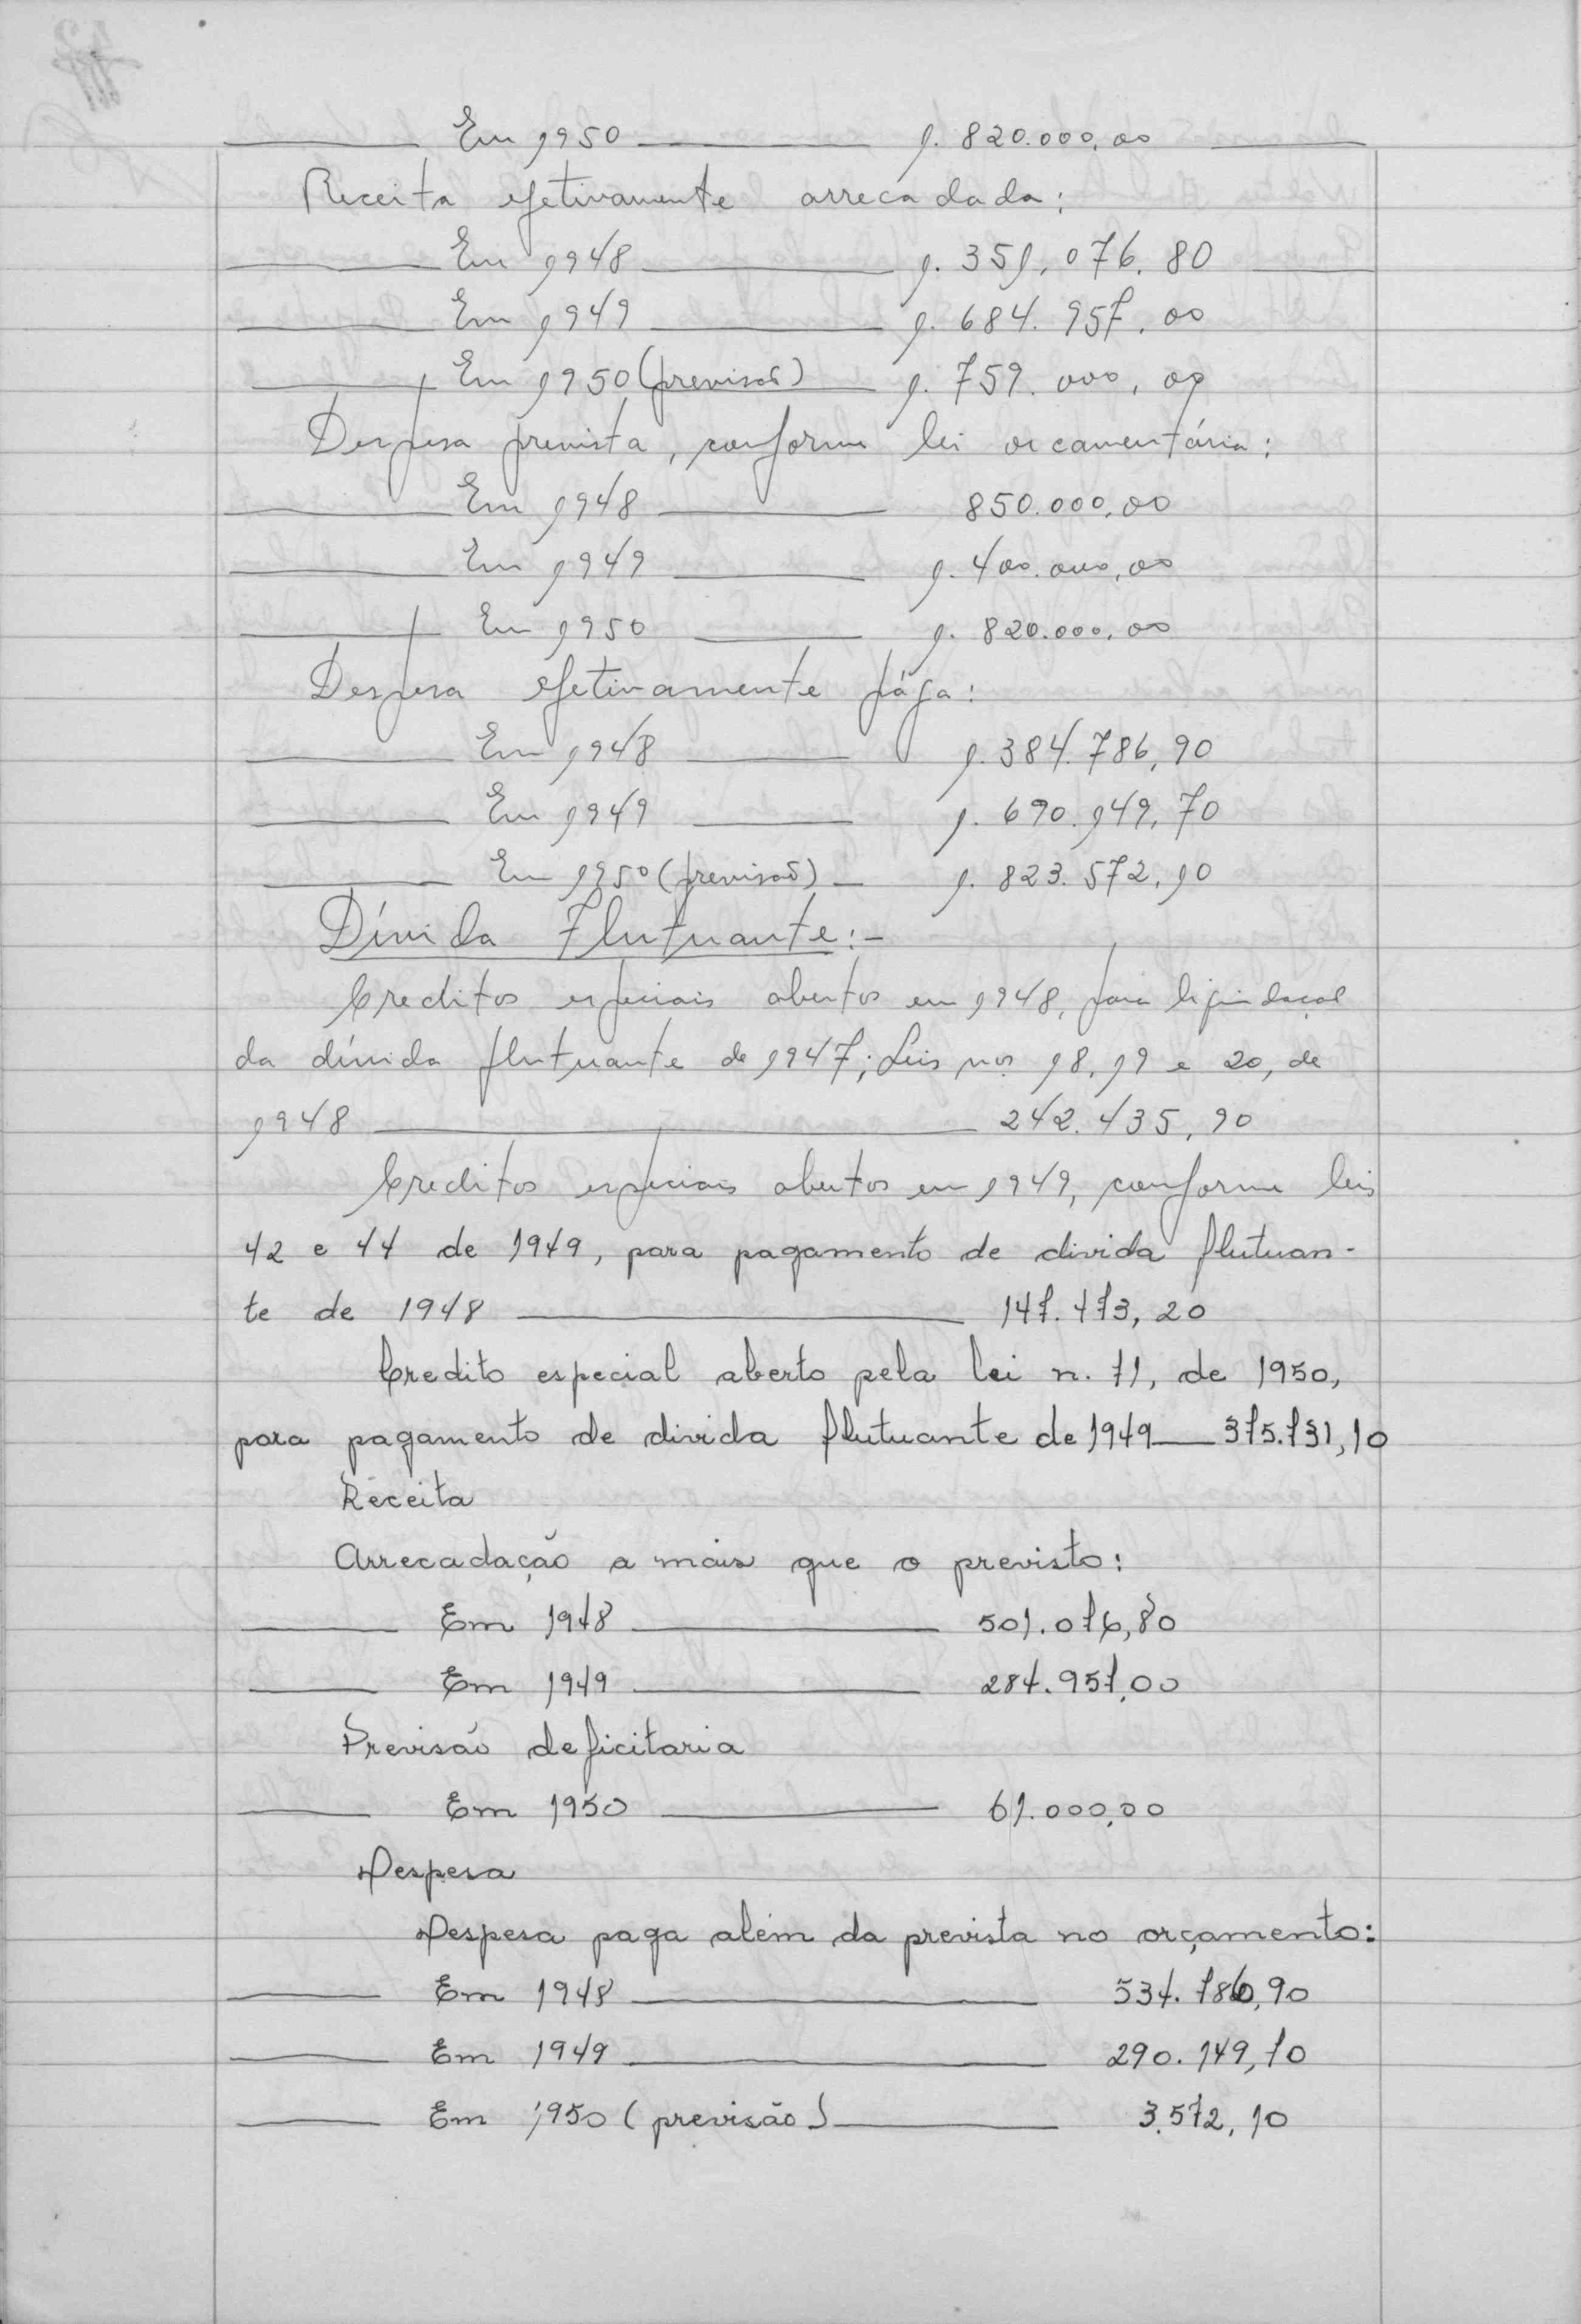 Em 1950 1.820.000,00
Receita efetivamente arrecadada:
Em 1948 1.351.076.80
Em 1949 1.684.957,00
Em 1950 (previsaõ) 1.759.000,00
Despesa prevista, conforme lei orcamentária:
Em 1948 850.000,00
Em 1949 1.400.000,00
Em 1950 1.820.000,00
Despesa efetivamente pága:
Em 1948 1.384.786,90
Em 1949 1.690.149,70
Em 1950 (previsaõ) 1.823.572,10
Dívida Flutuante:-
Creditos especiais abertos em 1948, para liquidaçaõ
da dívida flutuante de 1947; Leis nos 18, 19 e 20, de
1948 242.435,90
Creditos especiais abertos em 1949, conforme leis
42 e 44 de 1949, para pagamento de divida flutuan-
te de 1948 147.473,20
Credito especial aberto pela lei n. 71, de 1950,
para pagamento de divida flutuante de 1949 375.731,10
Receita
Arrecadação a mais que o previsto:
Em 1948 501.076,80
Em 1949 284.957,00
Previsaõ deficitaria
Em 1950 61.000,00
Despesa
Despesa paga além da prevista no orçamento:
Em 1948 534.786,90
Em 1949 290.149,70
Em 1950 (previsão) 3.572,10